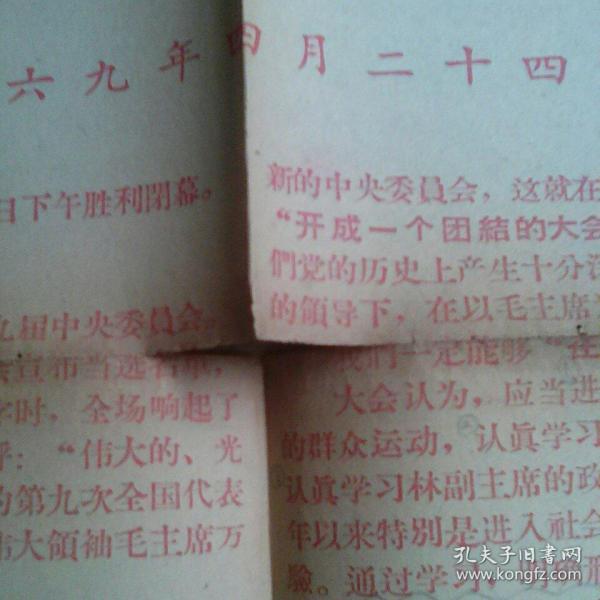 六九年四月二十四
日下午胜利閉幕。
九届中央委員会。
会宣布当选名单，
字时，全场响起了
呼：“伟大的、光
的第九次全国代表
伟大領袖毛主席万
新的中央委員会，这就在
“开成一个团結的大会
們党的历史上产生十分深
的領导下，在以毛主席为
我們一定能够“在
大会认为，应当进
的群众运动，认眞学习
认眞学习林副主席的政
年以来特别是进入社会
驗。通过学习，
孔夫子旧书网
www.kongfz.com